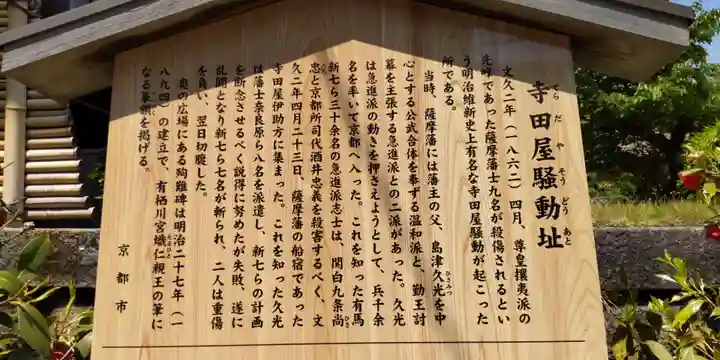 寺田屋騒動址
てらだやそうどうあと
文久二年（一八六二）四月、尊皇攘夷派の
先鋒であった薩摩藩士九名が殺傷されるとい
う明治維新史上有名な寺田屋騒動が起こった
所である。
当時、薩摩藩には藩主の父、島津久光を中
ひさみつ
心とする公武合体を奉ずる温和派と、勤王討
幕を主張する急進派との二派があった。久光
は急進派の動きを押さえようとして、兵千余
名を率いて京都へ入った。これを知った有馬
新七ら三十余名の急進派志士は、関白九条尚
ひさ
忠と京都所司代酒井忠義を殺害するべく、文
久二年四月二十三日、薩摩藩の船宿であった
寺田屋伊助方に集まった。これを知った久光
は藩士奈良原ら八名を派遣し、新七らの計画
を断念させるべく説得に努めたが失敗、遂に
乱闘となり新七ら七名が斬られ、二人は重傷
を負い、翌日切腹した。
奥の広場にある殉難碑は明治二十七年（一
八九四）の建立で、有栖川宮熾仁親王の筆に
なる篆額を掲げる。
京都市